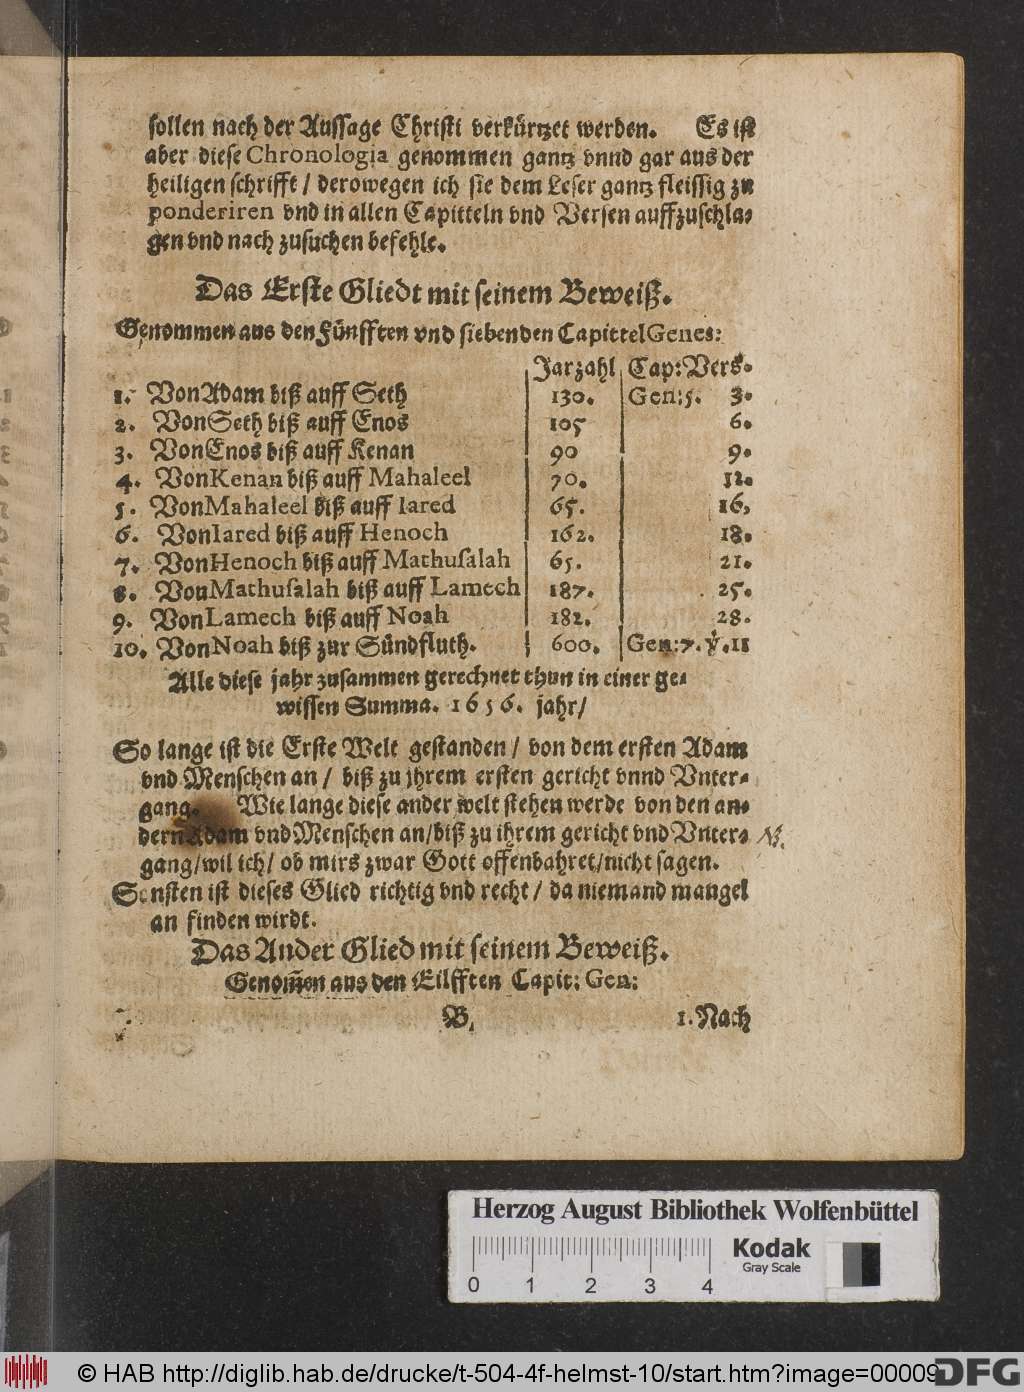 sollen nach der Aussage Christi verkürtzet werden. Es ist
aber diese Chronologia genommen gantz vnnd gar aus der
heiligen schrifft / derowegen ich sie dem Leser gantz fleissig zu
ponderiren vnd in allen Capitteln vnd Versen auffzuschla-
gen vnd nach zusuchen befehle.
Das Erste Gliedt mit seinem Beweiß.
Genommen aus den Fünfften vnd siebenden Capittel Genes:
Jarzahl Cap: Vers.
1. Von Adam biß auff Seth 130. Gen: 5. 3.
2. Von Seth biß auff Enos 105 6.
3. Von Enos biß auff Kenan 90 9.
4. Von Kenan biß auff Mahaleel 70. 12.
5. Von Mahaleel biß auff Iared 65. 16,
6. Von Iared biß auff Henoch 162. 18.
7. Von Henoch biß auff Mathusalah 65. 21.
8. Von Mathusalah biß auff Lamech 187. 25.
9. Von Lamech biß auff Noah 182. 28.
10. Von Noah biß zur Sündfluth. 600. Gen: 7. ℣. 11
Alle diese jahr zusammen gerechnet thun in einer ge-
wissen Summa. 1656. jahr/
So lange ist die Erste Welt gestanden / von dem ersten Adam
vnd Menschen an / biß zu jhrem ersten gericht vnnd Vnter-
gang. Wie lange diese ander welt stehen werde von den an-
dern Adam vnd Menschen an/biß zu ihrem gericht vnd Vnter-
gang/wil ich/ ob mirs zwar Gott offenbahret/nicht sagen.
Sonsten ist dieses Glied richtig vnd recht / da niemand mangel
an finden wirdt.
Das Ander Glied mit seinem Beweiß.
Genom̃en aus den Eilfften Capit: Gen:
B, 1. Nach
Herzog August Bibliothek Wolfenbüttel
Kodak
Gray Scale
0 1 2 3 4
© HAB http://diglib.hab.de/drucke/t-504-4f-helmst-10/start.htm?image=00009
DFG